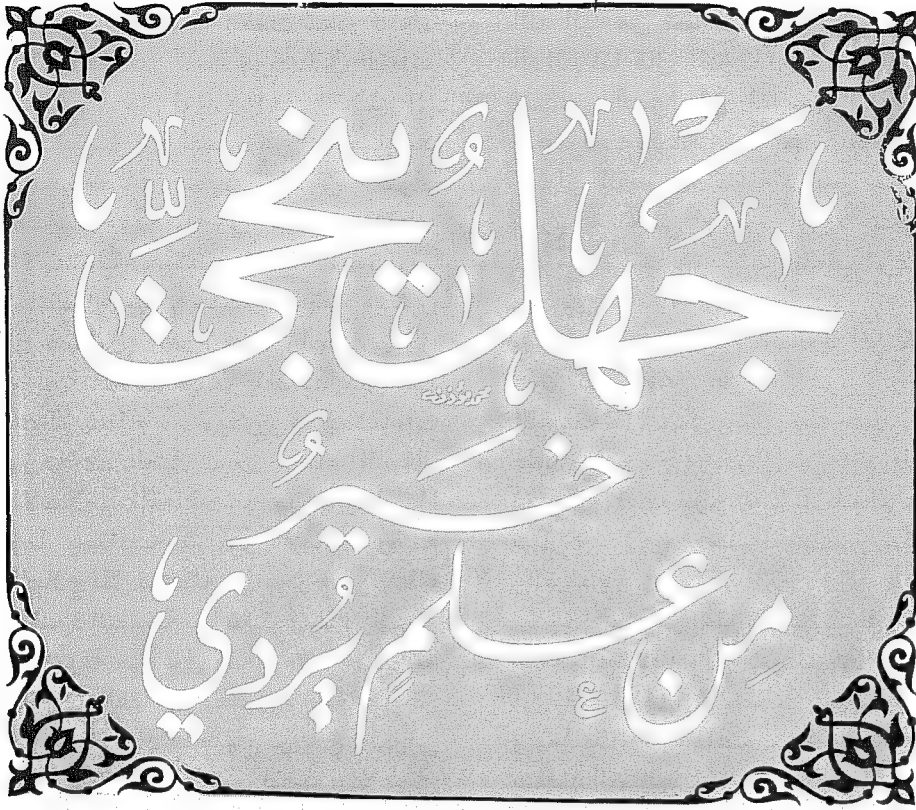 جَهْلٌ يُنَجِّي
خَيْرٌ
مِن عِلمٍ يُردي